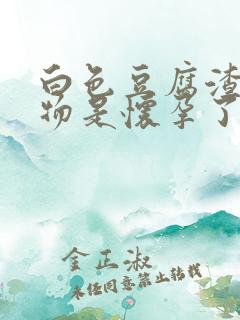 白色豆腐渣
物是怀孕了
金正淑
未经同意禁止转载